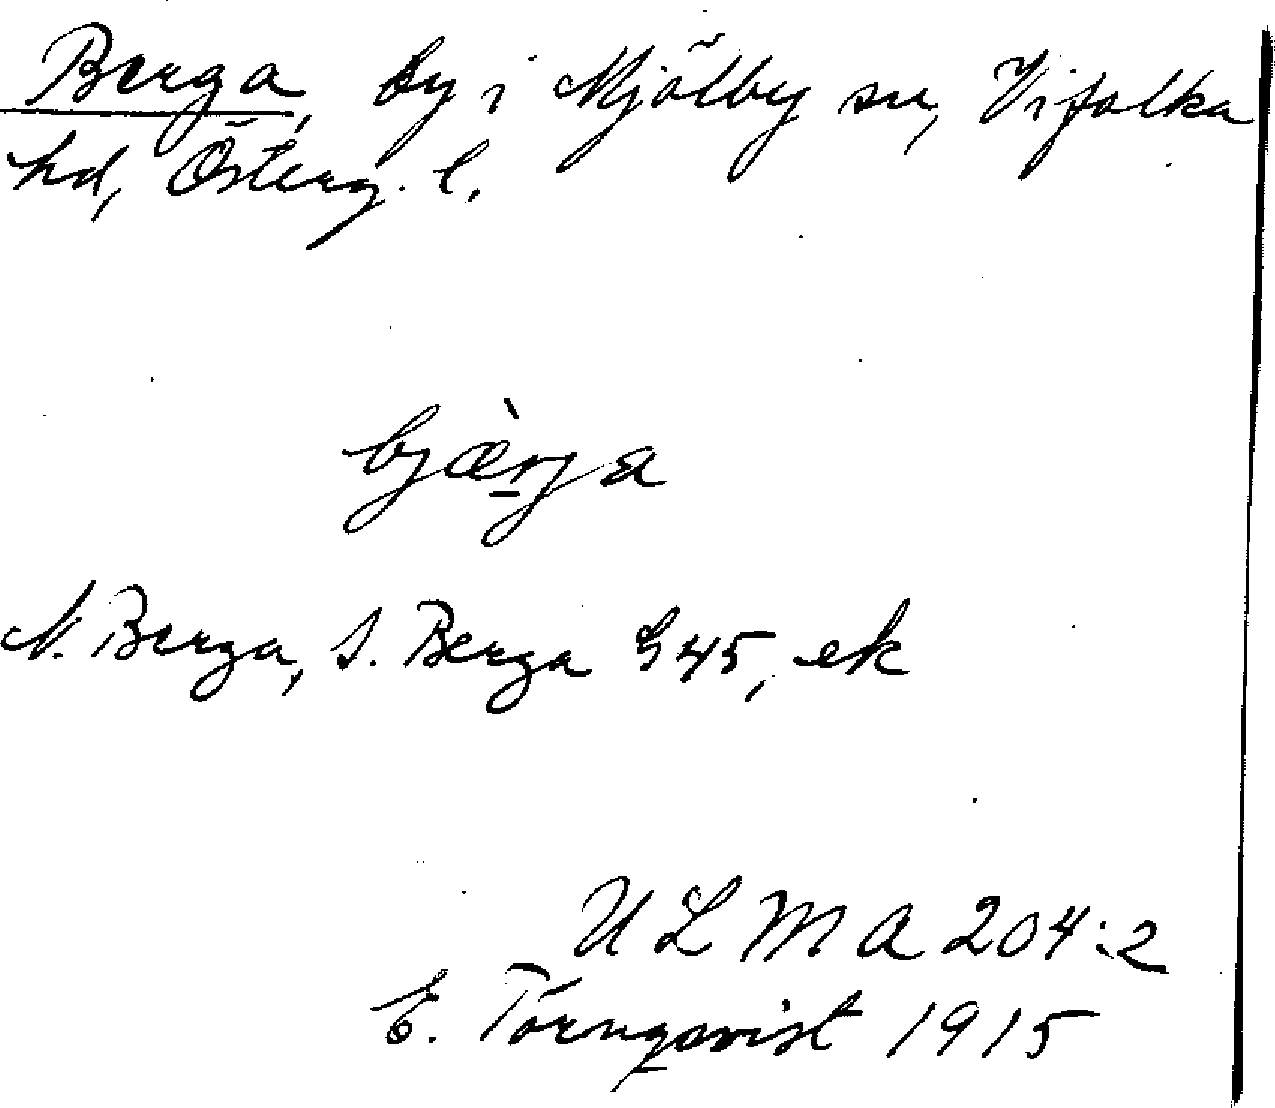 Berga, by i Mjölby sn, Vifolka
hd, Österg. l.
bjæ̀r̲ja
N. Berga, S. Berga G 45, ek
ULMA 204:2
E. Törnqvist 1915